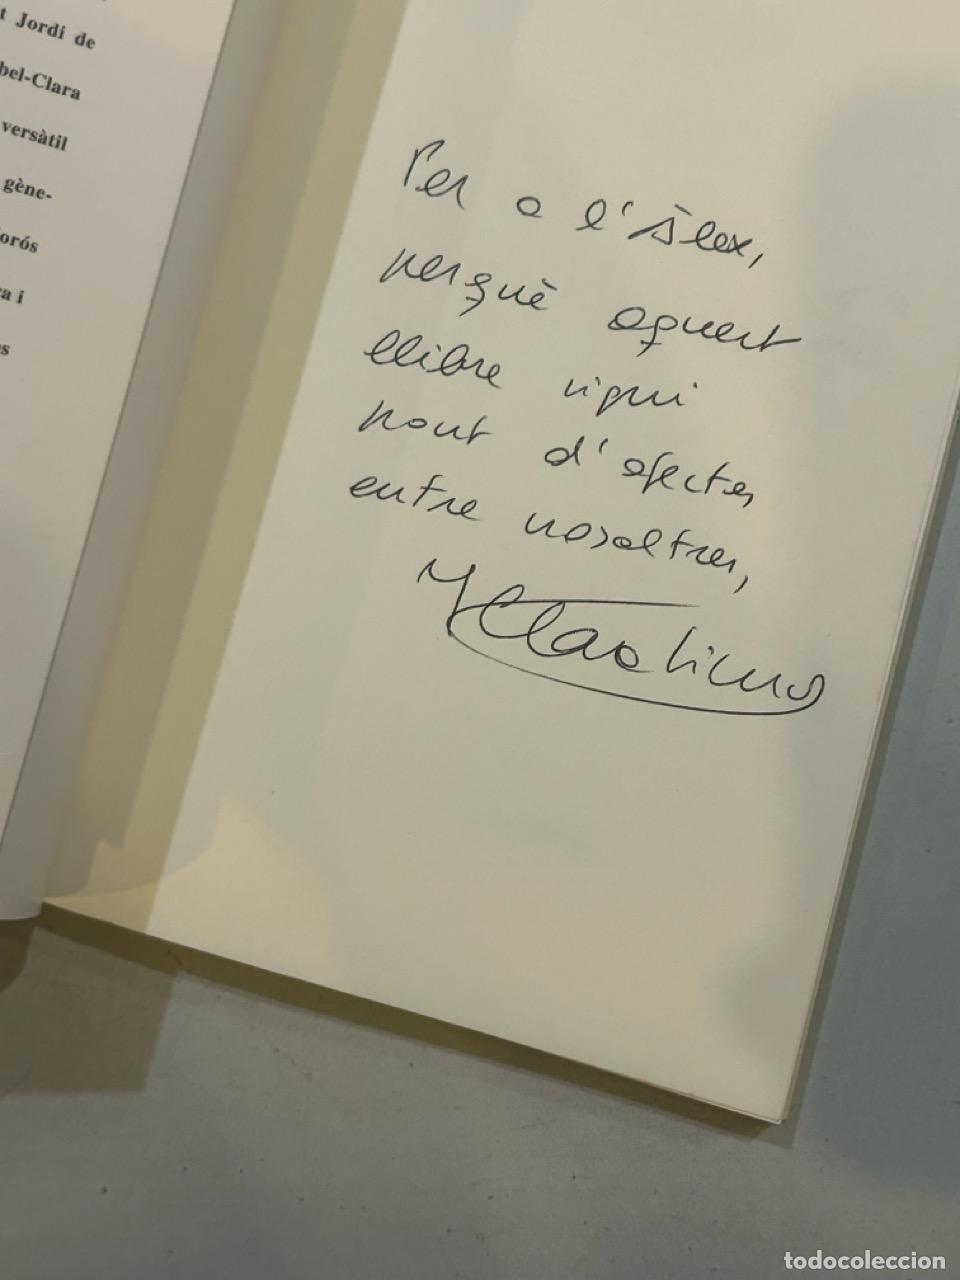 t Jordi de
bel-Clara
versàtil
gène-
orós
a i
s
Per a l'Àlex,
perquè aquest
llibre sigui
pont d'afectes
entre nosaltres,
todocoleccion